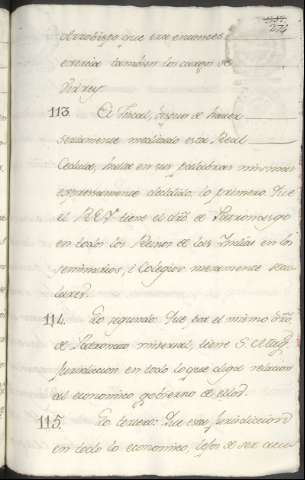 274
Arzobispo, que era entonces
exercia tambien los cargos de
Virrey.
113. El Fiscal, despues de haver
seriamente meditado esta Real
Cedula, halla en sus palabras mismas
expresamente decidido: lo primero: Que
el REY tiene el dro de Patronazgo
en todos los Reinos de las Indias en los
seminarios, i Colegios meramente secu
lares.
114. Lo segundo: Que por el mismo dro
de Patronato universal, tiene S. Mag.
Jurisdicion en todo lo que diga relacion
al economico gobierno de ellos.
115. Lo tercero: Que esta Jurisdicion
en todo lo economico, lejos de ser